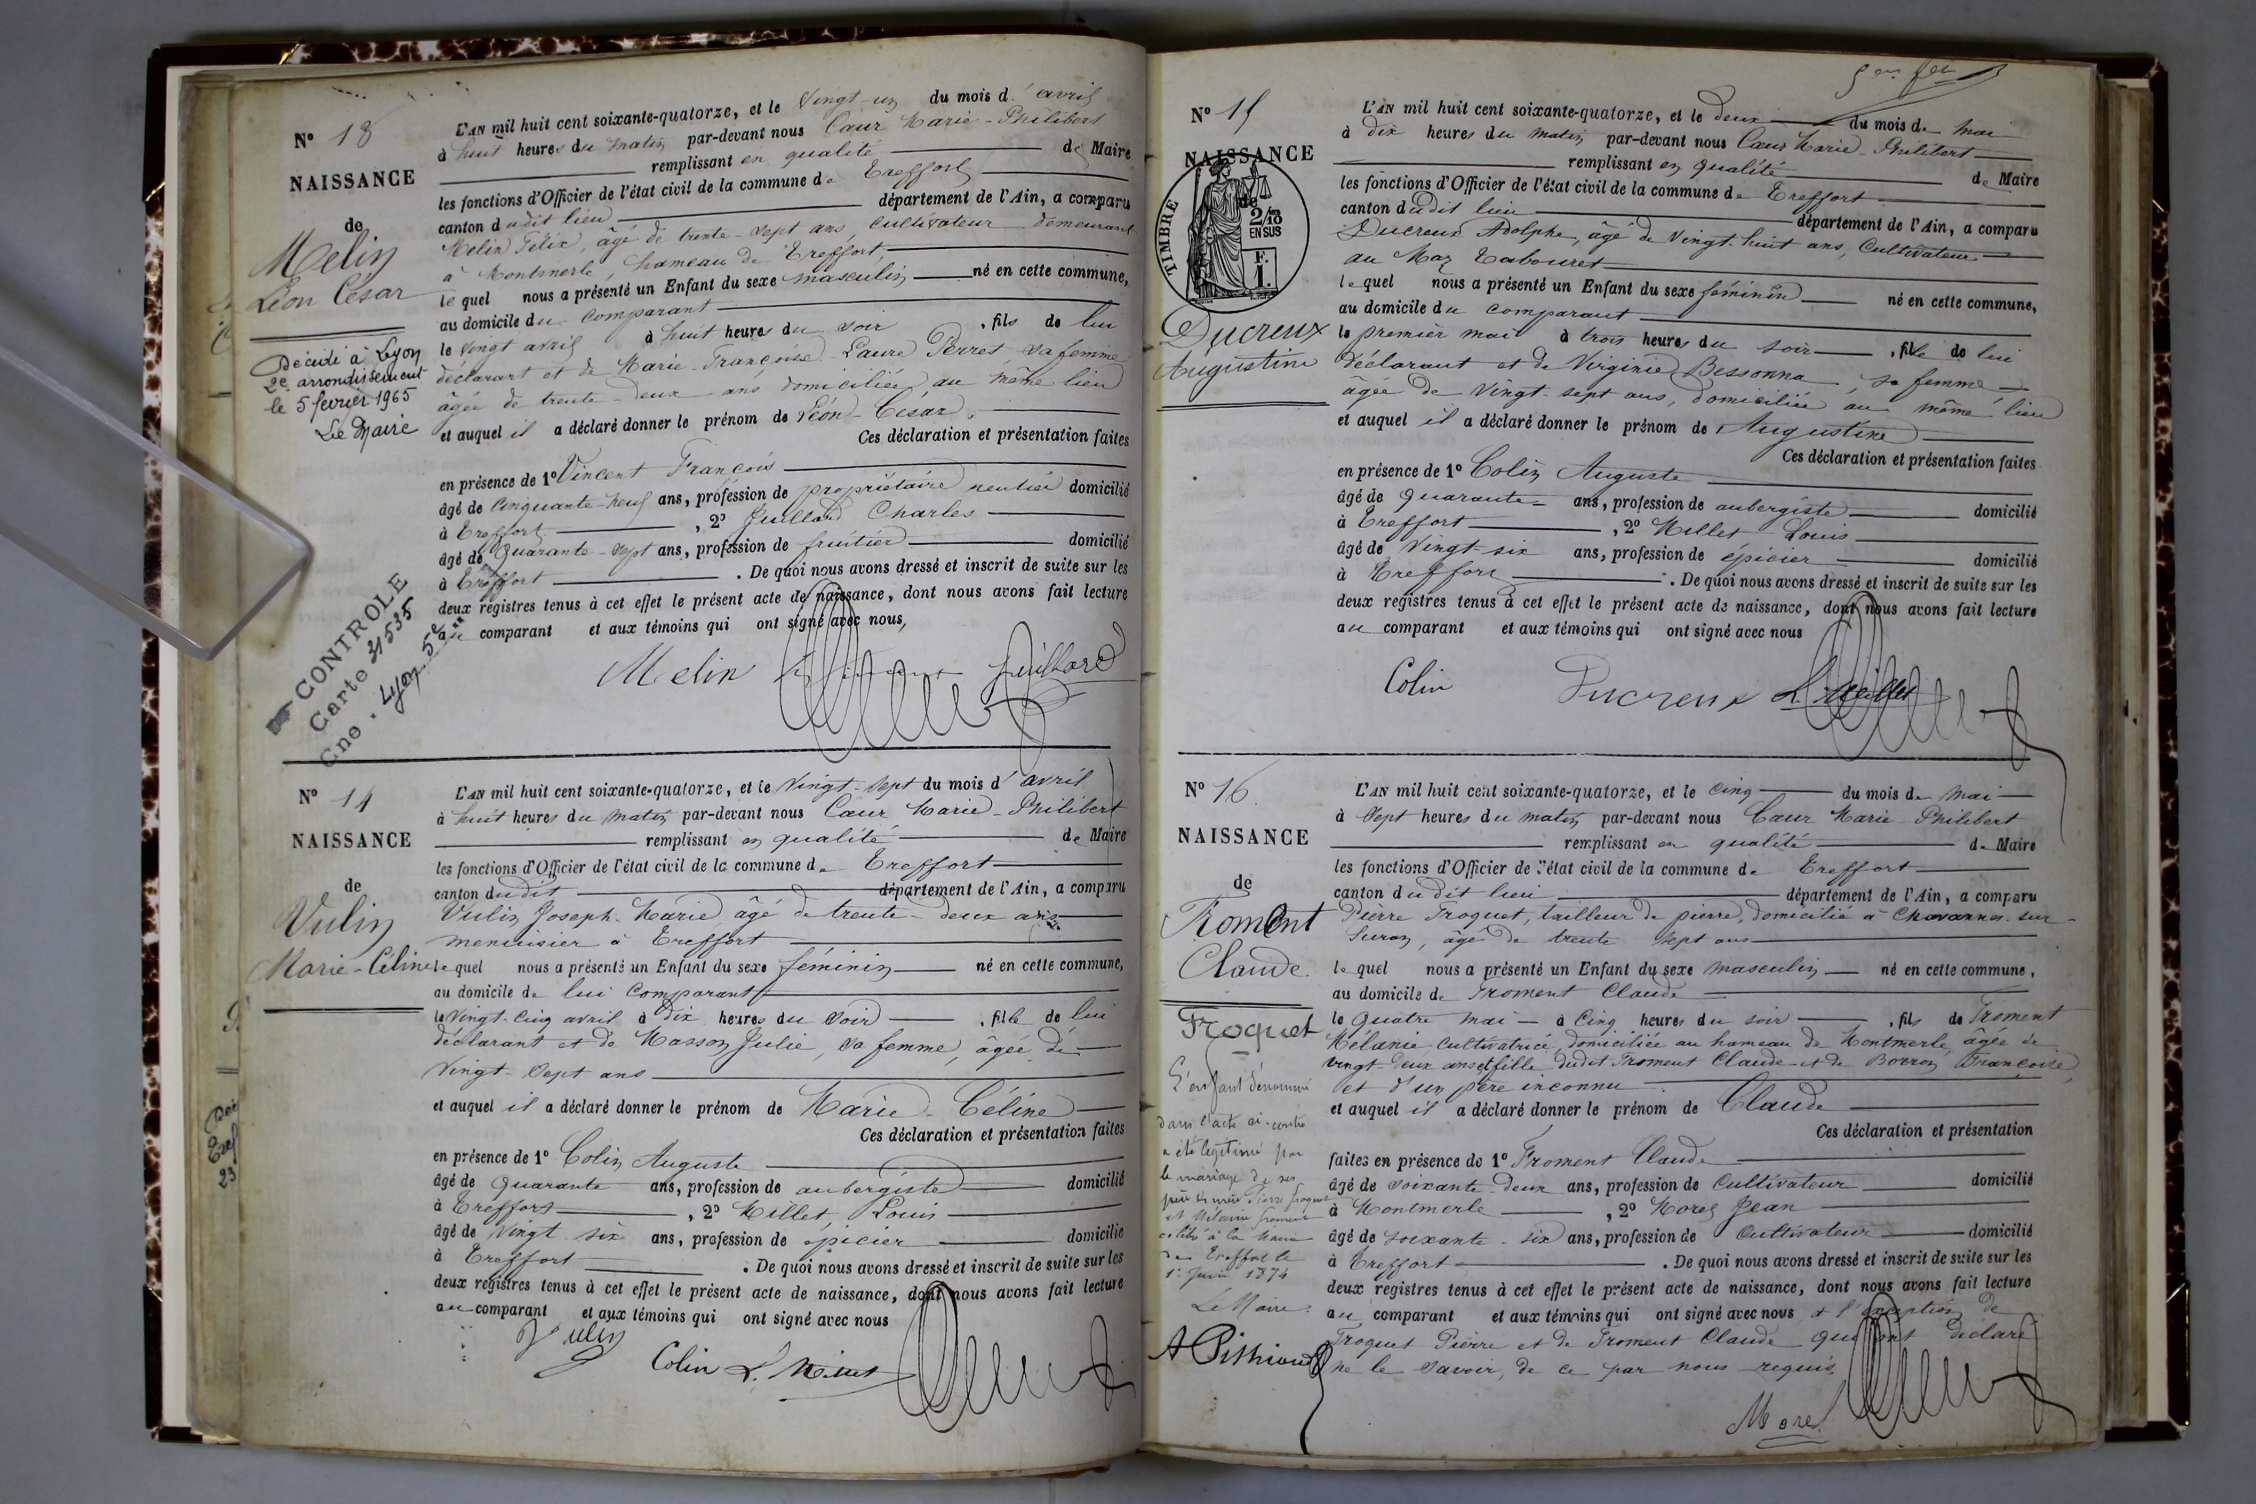 N° 18
NAISSANCE
de
Melin
Léon César
Décédé à Lyon
2e arrondissement
le 5 février 1965
Le Maire
CONTROLE
Carte 31535
Cne. Lyon 5e
L'AN mil huit cent soixante-quatorze, et le vingt-un du mois d'avril
à huit heures du matin par-devant nous Cœur Marie-Philibert
remplissant en qualité de Maire
les fonctions d'Officier de l'état civil de la commune de Treffort
canton dudit lieu département de l'Ain, a comparu
Melin Félix, âgé de trente-sept ans, cultivateur demeurant
à Montmerle, hameau de Treffort,
lequel nous a présenté un Enfant du sexe masculin né en cette commune,
au domicile du comparant
le vingt avril à huit heures du soir, fils de lui
déclarant et de Marie-Françoise Laure Perret sa femme
âgée de trente-deux ans domiciliée au même lieu
et auquel il a déclaré donner le prénom de Léon-César.
Ces déclaration et présentation faites
en présence de 1° Vincent François
âgé de cinquante-neuf ans, profession de propriétaire rentier domicilié
à Treffort, 2° Juillard Charles
âgé de quarante-sept ans, profession de fruitier domicilié
à Treffort. De quoi nous avons dressé et inscrit de suite sur les
deux registres tenus à cet effet le présent acte de naissance, dont nous avons fait lecture
au comparant et aux témoins qui ont signé avec nous,
Melin Juillard
N° 14
NAISSANCE
de
Vulin
Marie-Céline
L'AN mil huit cent soixante-quatorze, et le vingt-sept du mois d'avril
à huit heures du matin par-devant nous Cœur Marie-Philibert
remplissant en qualité de Maire
les fonctions d'Officier de l'état civil de la commune de Treffort
canton dudit département de l'Ain, a comparu
Vulin Joseph-Marie, âgé de trente-deux ans
menuisier à Treffort
lequel nous a présenté un Enfant du sexe féminin né en cette commune,
au domicile de lui comparant
le vingt-cinq avril à dix heures du soir, fille de lui
déclarant et de Masson Julie, sa femme, âgée de
vingt-sept ans
et auquel il a déclaré donner le prénom de Marie-Céline
Ces déclaration et présentation faites
en présence de 1° Colin Auguste
âgé de quarante ans, profession de aubergiste domicilié
à Treffort, 2° Millet Louis
âgé de vingt six ans, profession de épicier domicilié
à Treffort. De quoi nous avons dressé et inscrit de suite sur les
deux registres tenus à cet effet le présent acte de naissance, dont nous avons fait lecture
au comparant et aux témoins qui ont signé avec nous
Vulin
Colin L. Millet
N° 15
NAISSANCE
de
TIMBRE
2/10
EN SUS
F.
1.
Ducreux
Augustine
L'AN mil huit cent soixante-quatorze, et le deux du mois de mai
à dix heures du matin par-devant nous Cœur Marie-Philibert
remplissant en qualité de Maire
les fonctions d'Officier de l'état civil de la commune de Treffort
canton dudit lieu département de l'Ain, a comparu
Ducreux Adolphe, âgé de vingt-huit ans, cultivateur
au Maz Tabouret
lequel nous a présenté un Enfant du sexe féminin né en cette commune,
au domicile du comparant
le premier mai à trois heures du soir, fille de lui
déclarant et de Virginie Bessonna, sa femme
âgée de vingt-sept ans, domiciliée au même lieu
et auquel il a déclaré donner le prénom de Augustine
Ces déclaration et présentation faites
en présence de 1° Colin Auguste
âgé de quarante ans, profession de aubergiste domicilié
à Treffort, 2° Millet Louis
âgé de vingt-six ans, profession de épicier domicilié
à Treffort. De quoi nous avons dressé et inscrit de suite sur les
deux registres tenus à cet effet le présent acte de naissance, dont nous avons fait lecture
au comparant et aux témoins qui ont signé avec nous
Colin Ducreux L. Millet
N° 16.
NAISSANCE
de
Froment
Claude
Froquet
L'enfant dénommé
dans l'acte ci-contre
a été légitimé par
le mariage de ses
père et mère Pierre Froquet
et Mélanie Froment
célébré à la Mairie
de Treffort le
1er Juin 1874
Le Maire:
A Pithioud
L'AN mil huit cent soixante-quatorze, et le cinq du mois de mai
à sept heures du matin par-devant nous Cœur Marie Philibert
remplissant en qualité de Maire
les fonctions d'Officier de l'état civil de la commune de Treffort
canton dudit lieu département de l'Ain, a comparu
Pierre Froquet, tailleur de pierre, domicilié à Chavannes-sur-
Suran, âgé de trente sept ans
lequel nous a présenté un Enfant du sexe masculin né en cette commune,
au domicile de Froment Claude
le quatre mai à cinq heures du soir, fils de Froment
Mélanie, cultivatrice, domiciliée au hameau de Montmerle, âgée de
vingt-deux ans et fille dudit Froment Claude et de Borron Françoise,
et d'un père inconnu
et auquel il a déclaré donner le prénom de Claude
Ces déclaration et présentation
faites en présence de 1° Froment Claude
âgé de soixante-deux ans, profession de cultivateur domicilié
à Montmerle, 2° Morel Jean
âgé de soixante-six ans, profession de cultivateur domicilié
à Treffort. De quoi nous avons dressé et inscrit de suite sur les
deux registres tenus à cet effet le présent acte de naissance, dont nous avons fait lecture
au comparant et aux témoins qui ont signé avec nous à l'exception de
Froquet Pierre et de Froment Claude qui ont déclaré
ne le savoir, de ce par nous requis.
Morel